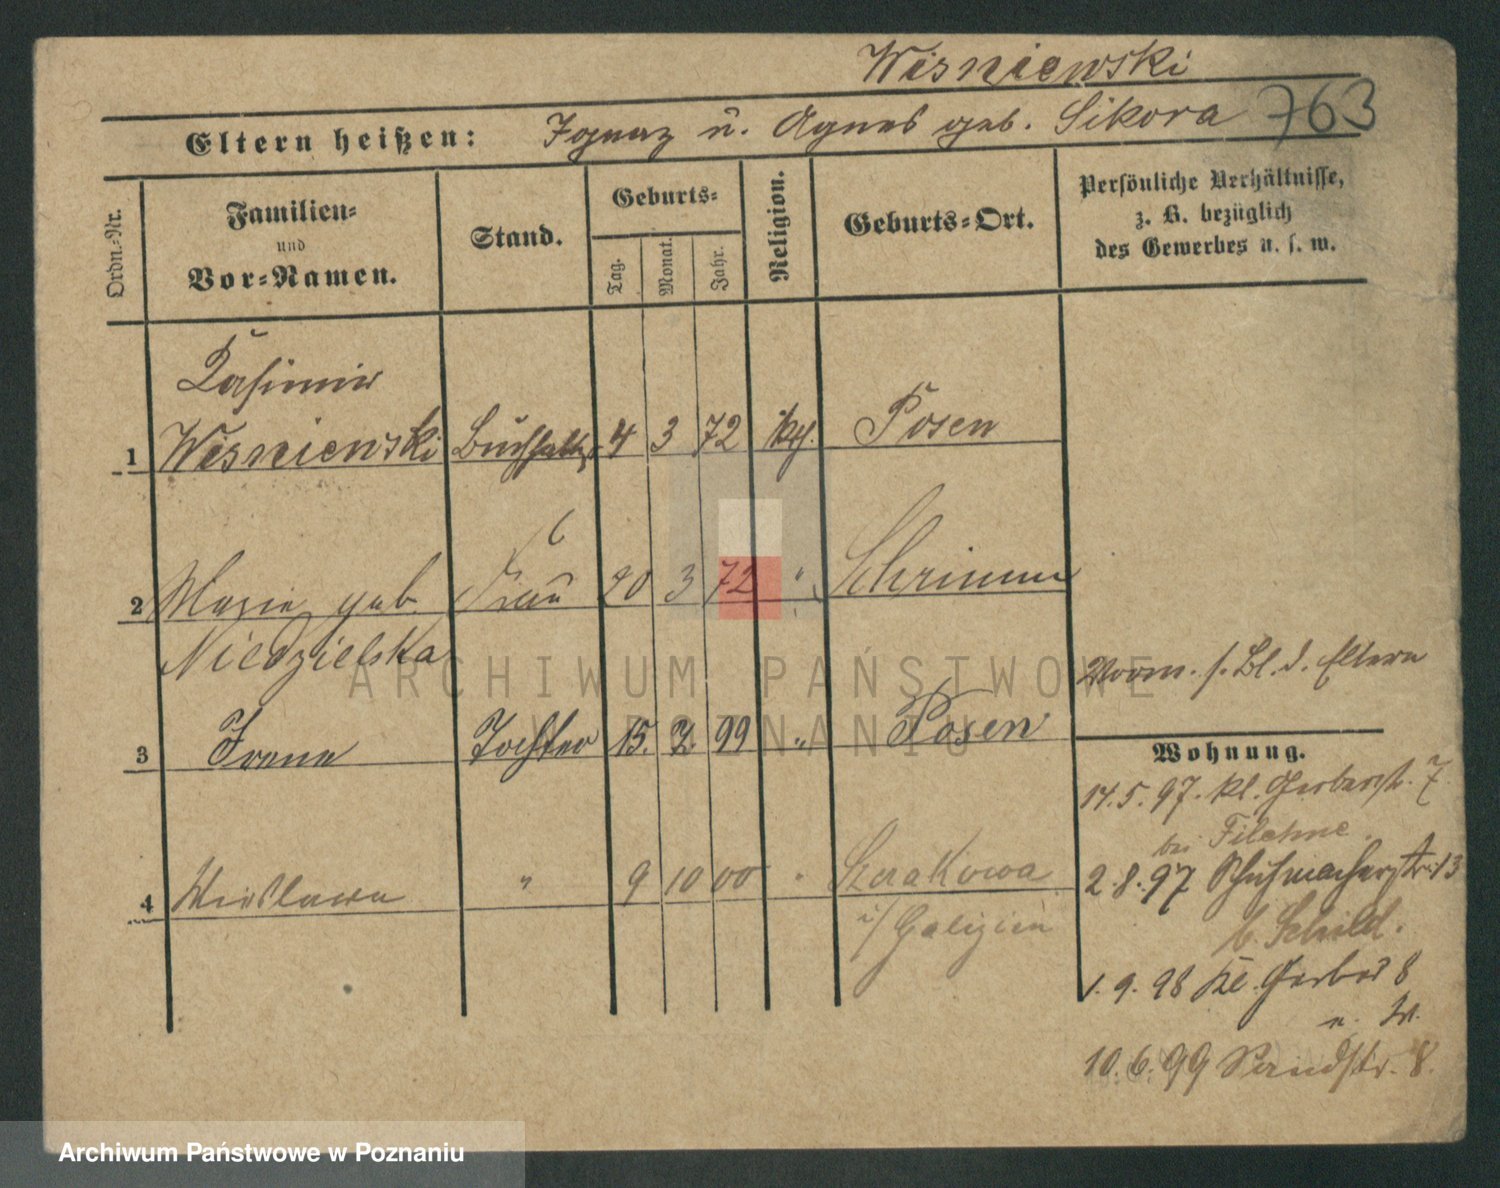 Wisniewski
763
Eltern heißen: Ignaz u. Agnes geb. Sikora
Ordn.-Nr.
Familien-
und
Vor-Namen.
Stand.
Geburts-
Tag. Monat. Jahr.
Religion.
Geburts-Ort.
Persönliche Verhältnisse,
z. B. bezüglich
des Gewerbes u. s. w.
Kasimir
1 Wisniewski Buchhalter 4 3 72 kth. Posen
2 Marie geb. Frau 20 3 72 " Schrimm
Niedzielska
3 Irene Tochter 15. 2. 99 " Posen
4 Wieslawa " 9 10 00 "
i/ Galizien
Vorm. s. Bl. d. Eltern
Wohnung.
14.5.97. kl. Gerberstr. 7.
bei Filehne.
2.8.97 Schuhmacherstr. 13
b. Schild.
1.9.98 Kl. Gerber 8
u. W.
10.6.99 Sandstr. 8.
ARCHIWUM PAŃSTWOWE
W POZNANIU
Archiwum Państwowe w Poznaniu